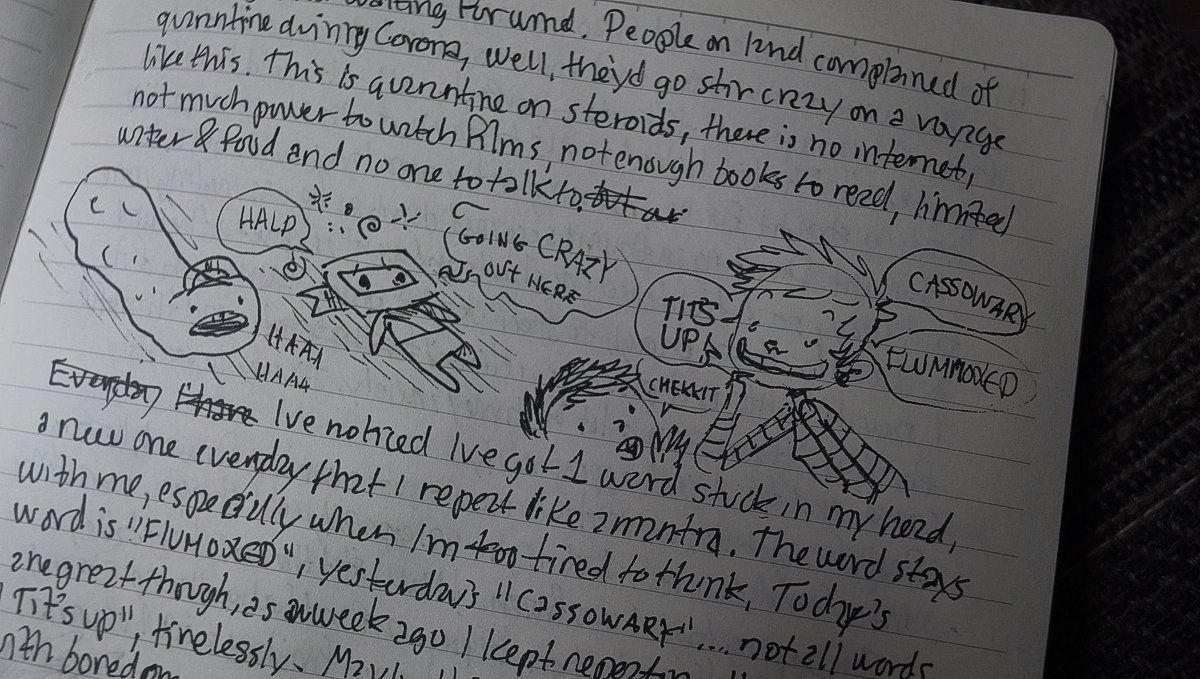 waiting around. People on land complained of
quarantine during Corona, well, they'd go stir crazy on a voyage
like this. This is quarantine on steroids, there is no internet,
not much power to watch films, not enough books to read, limited
water & food and no one to talk to. but
HALP
GOING CRAZY
OUT HERE
HAAA
HAAA
TIT'S
UP
CHEKKIT
CASSOWARY
FLUMMOXED
Everyday I have Ive noticed Ive got 1 word stuck in my head,
a new one everyday that I repeat like a mantra. The word stays
with me, especially when I'm too tired to think, Today's
word is "FlUMOXED", yesterday's "CASSOWARY"... not all words
are great though, as a week ago I kept repeating
"Tit's up", tirelessly.
boredom